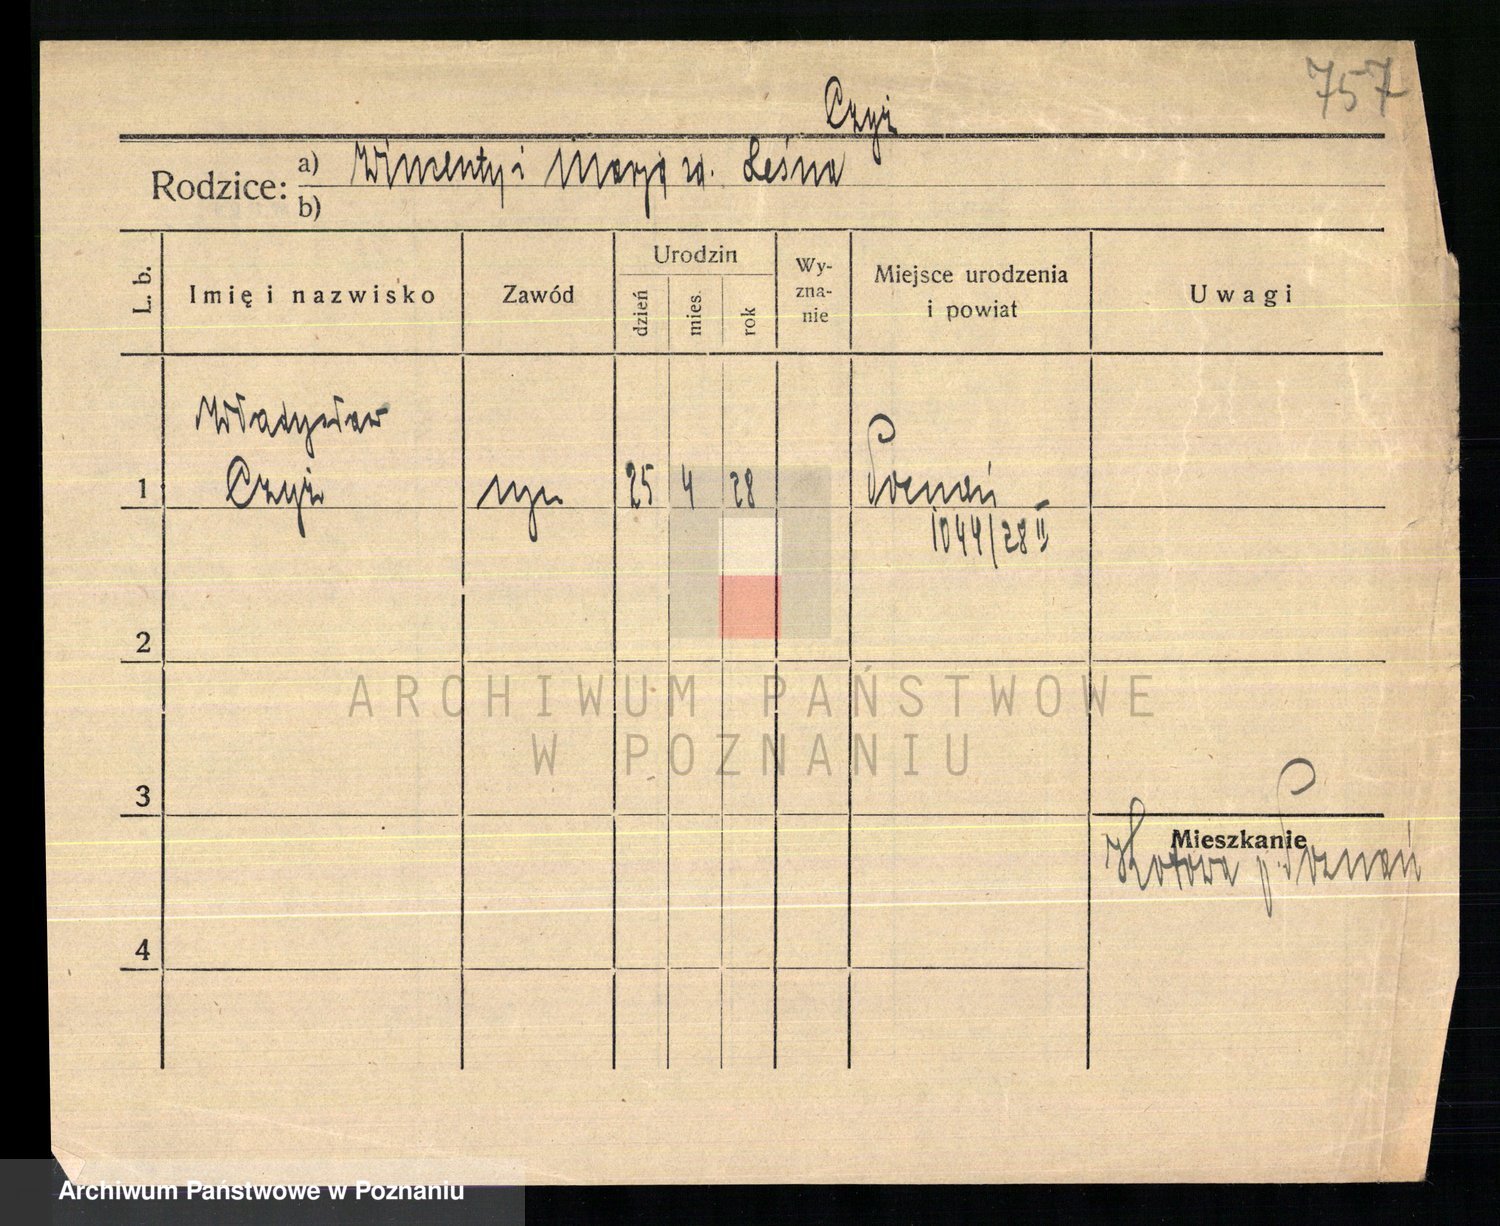 757
Czyż
Rodzice: a) Wincenty i Marja zd. Leśna
b)
L. b.
Imię i nazwisko
Zawód
Urodzin
dzień
mies.
rok
Wy-
zna-
nie
Miejsce urodzenia
i powiat
Uwagi
Władysław
1 Czyż syn 25 4 28 Poznań
1044/28 II
2
3
4
Mieszkanie
Kotowo p. Poznań
ARCHIWUM PAŃSTWOWE
W POZNANIU
Archiwum Państwowe w Poznaniu